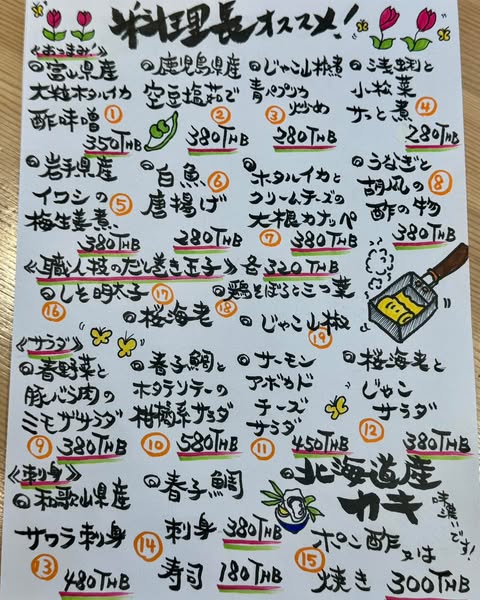 料理長オススメ!
《おつまみ!》
◎富山県産
大粒ホタルイカ
酢味噌 ①
350THB
◎鹿児島県産
空豆塩茹で
②
380THB
◎じゃこ山椒煮
青パプリカ
③ 炒め
280THB
◎浅蜊と
小松菜
サッと煮 ④
280THB
◎岩手県産
イワシの ⑤
梅生姜煮
380THB
◎白魚 ⑥
唐揚げ
280THB
◎ホタルイカと
クリームチーズの
大根カナッペ
⑦ 380THB
◎うなぎと
胡瓜の ⑧
酢の物
380THB
《職人技のだし巻き玉子》各320THB
◎しそ明太子 ⑰
⑯ ◎桜海老
⑱ ◎鶏そぼろと三つ葉
◎じゃこ山椒
⑲
《サラダ》
◎春野菜と
豚バラ肉の
ミモザサラダ
⑨ 380THB
◎春子鯛と
ホタテソテーの
柑橘系サラダ
⑩ 580THB
◎サーモン
アボカド
チーズ
サラダ
⑪ 450THB
◎桜海老と
じゃこ
サラダ
⑫ 380THB
《刺身》
◎和歌山県産
サワラ刺身
⑬ 480THB
◎春子鯛
⑭ 刺身 380THB
寿司 180THB
◎北海道産
カキ
味濃いです!
⑮ ポン酢 又は
焼き 300THB